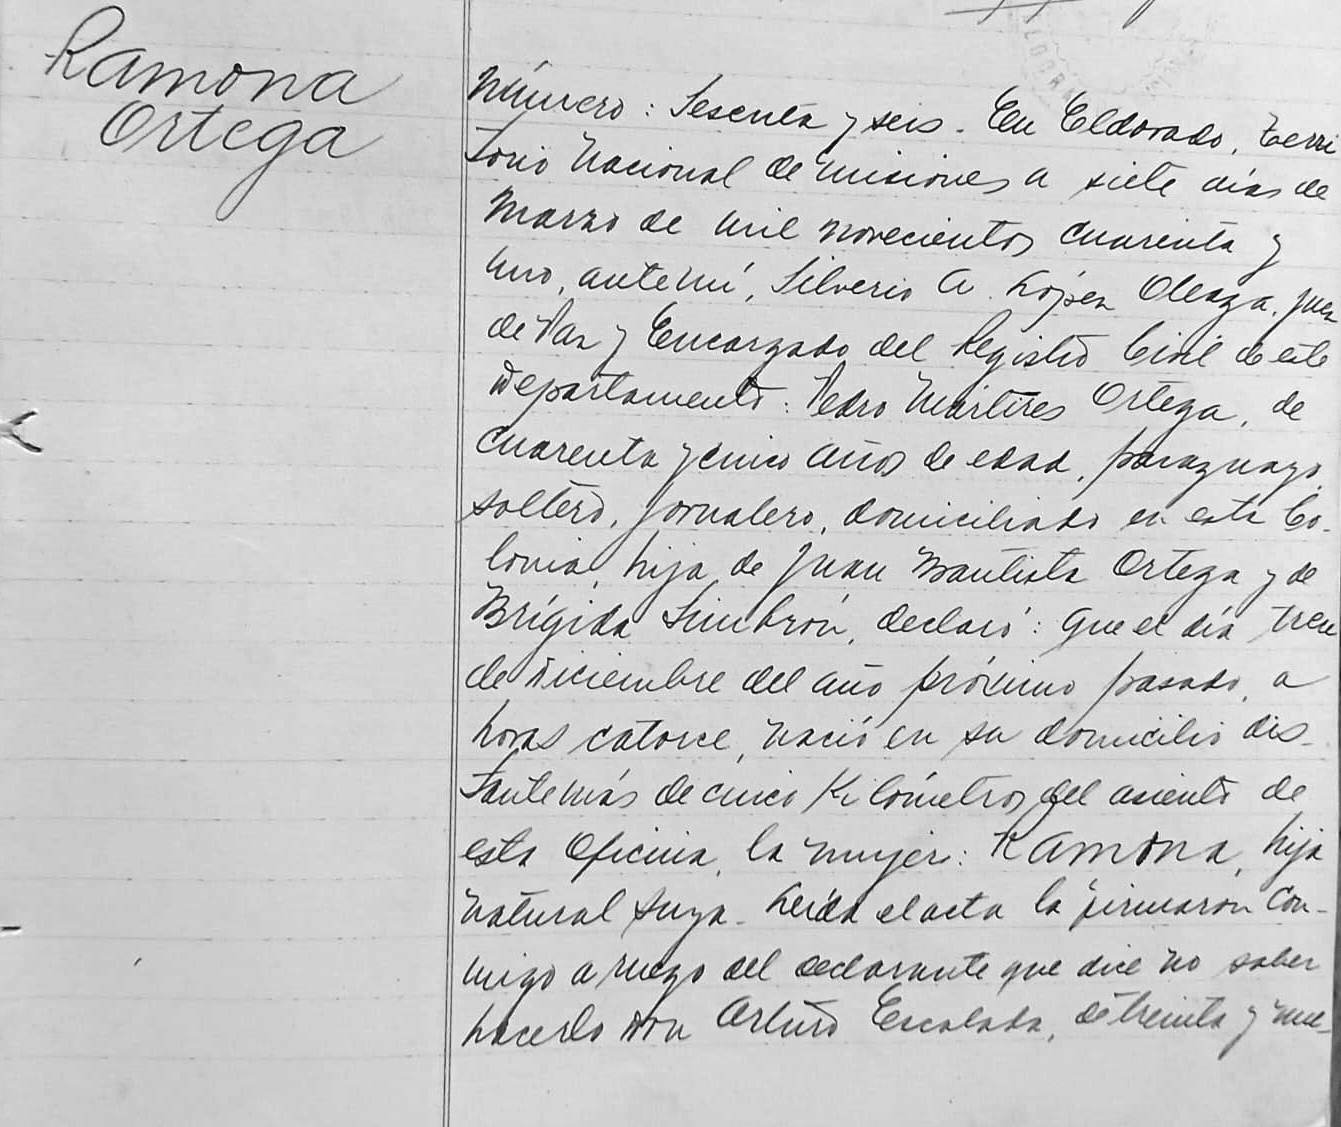 Ramona
Ortega
Número: Sesenta y seis. En Eldorado, Terri
torio Nacional de Misiones a siete días de
Marzo de mil novecientos cuarenta y
uno, ante mí, Silverio A. López Oleaga, Juez
de Paz y Encargado del Registro Civil de este
Departamento: Pedro Mártires Ortega, de
cuarenta y cinco años de edad, paraguayo,
soltero, jornalero, domiciliado en esta Co-
lonia, hija de Juan Bautista Ortega y de
Brígida Simbrón, declaró: Que el día trece
de Diciembre del año próximo pasado, a
horas catorce, nació en su domicilio dis-
tante más de cinco Kilómetros del asiento de
esta Oficina, la mujer: Ramona, hija
natural suya. Leída el acta la firmaron con-
migo a ruego del declarante que dice no saber
hacerlo Don Arturo Escalada, de treinta y nue-